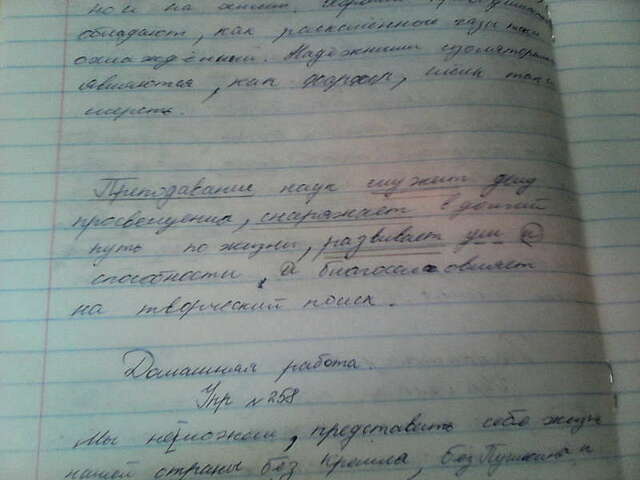 но и на
обладают, как раскаленного газы так и
охлаждённый. Надёжными изоляторами
являются, как фарфор, так и
шерсть.
Преподавание наук служит делу
просвещения, снаряжает в долгий
путь по жизни, развивает ум и
способности, и благословляет
на творческий поиск.
Домашная работа.
Упр №258
Мы не можем, представить себе жизнь
нашей страны без Кремля, без Пушкина и